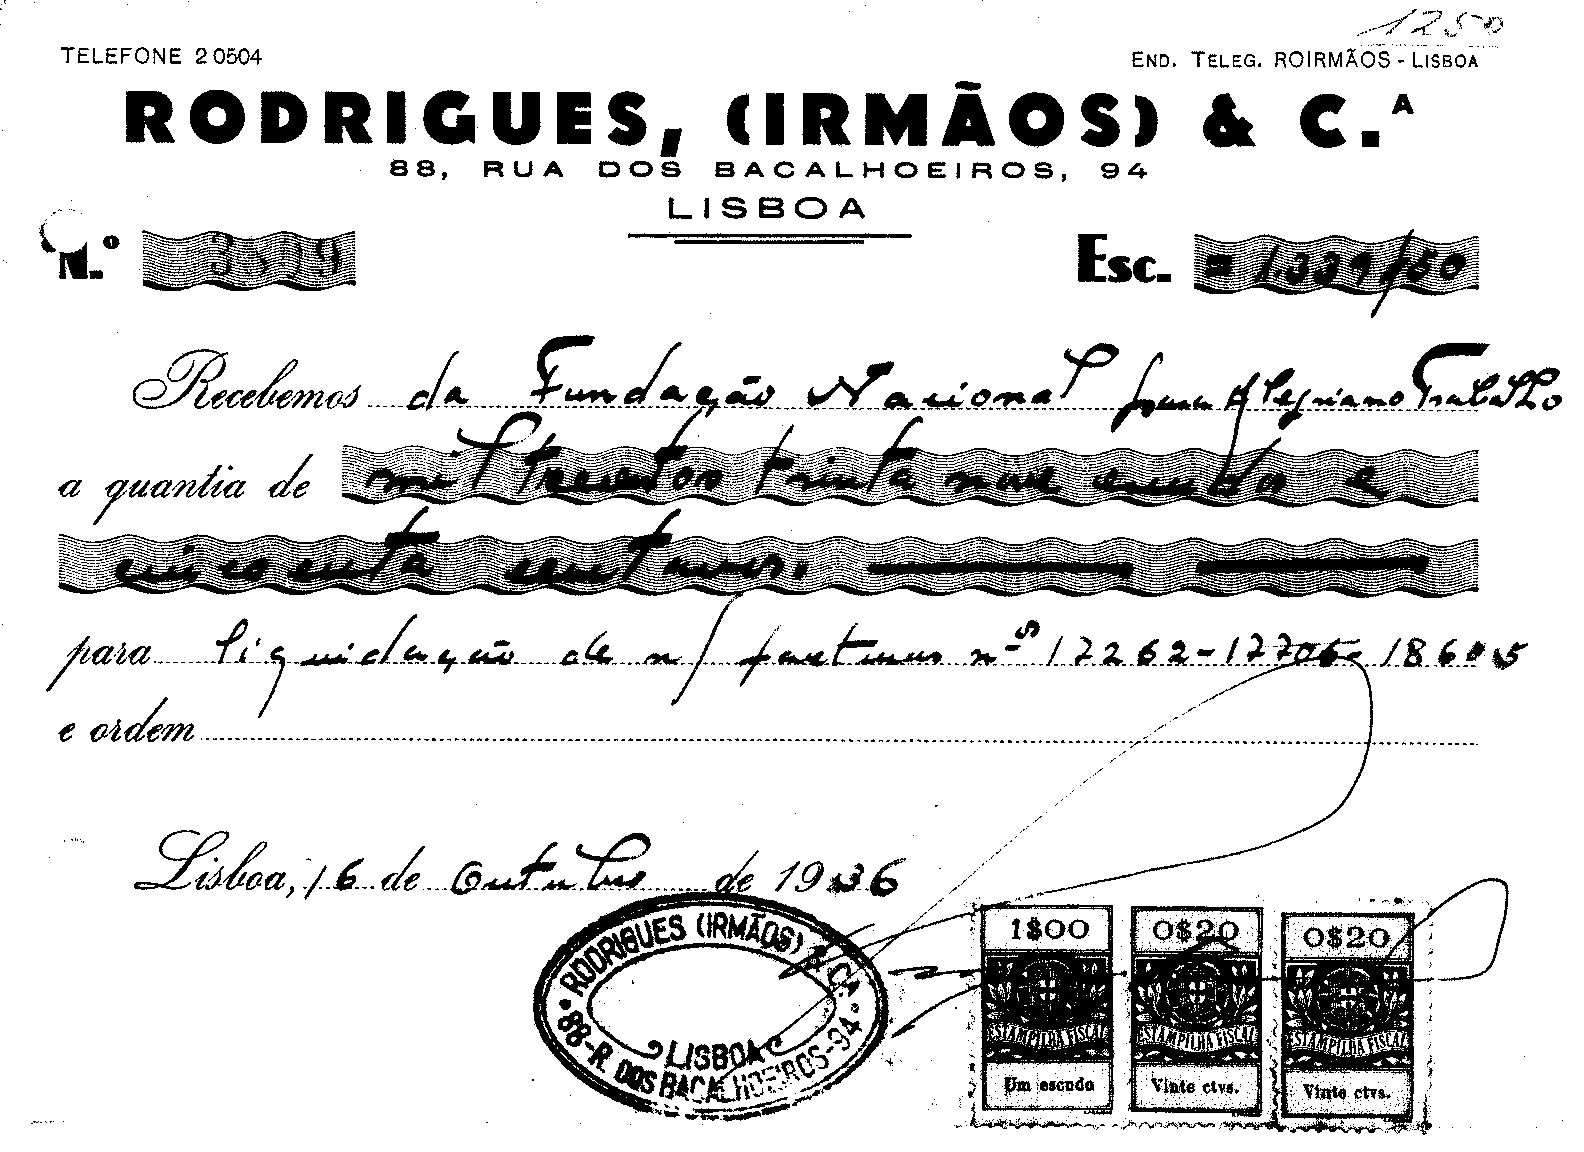 1250
TELEFONE 20504
END. TELEG. ROIRMÃOS - LISBOA
RODRIGUES, (IRMÃOS) & C.ᴬ
88, RUA DOS BACALHOEIROS, 94
LISBOA
N.º
Esc. = 1.339/50
Recebemos da Fundação Nacional para Alegria no Trabalho
a quantia de mil trezentos trinta nove escudos e
cincoenta centavos.
para liquidação de n/ facturas nºs 17262-17706-18605
e ordem
Lisboa, 16 de Outubro de 1936
RODRIGUES (IRMÃOS) & C.ᴬ
LISBOA
88-R. DOS BACALHOEIROS-94
1$00
ESTAMPILHA FISCAL
Um escudo
0$20
ESTAMPILHA FISCAL
Vinte ctvs.
0$20
ESTAMPILHA FISCAL
Vinte ctvs.